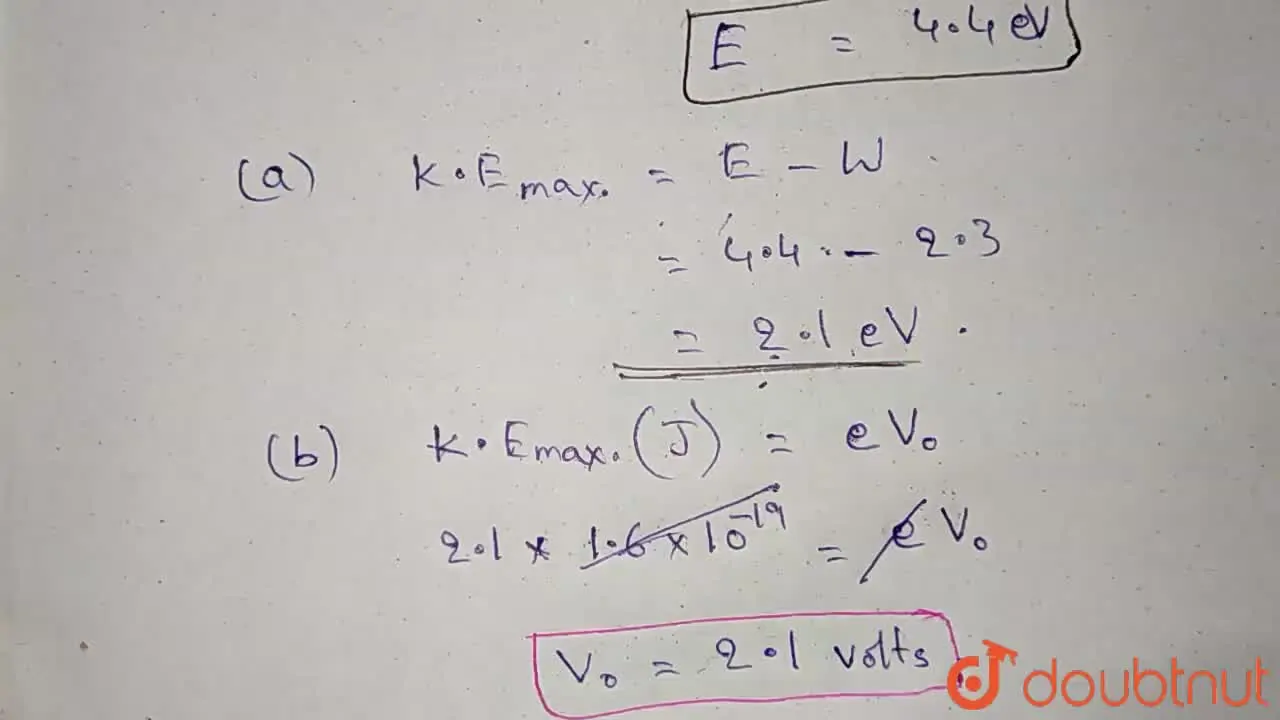 E = 4.4 eV
(a) K.E max. = E - W
= 4.4 - 2.3
= 2.1 eV.
(b) K.E max. (J) = eV₀
2.1 × 1.6 × 10⁻¹⁹ = eV₀
V₀ = 2.1 volts
doubtnut